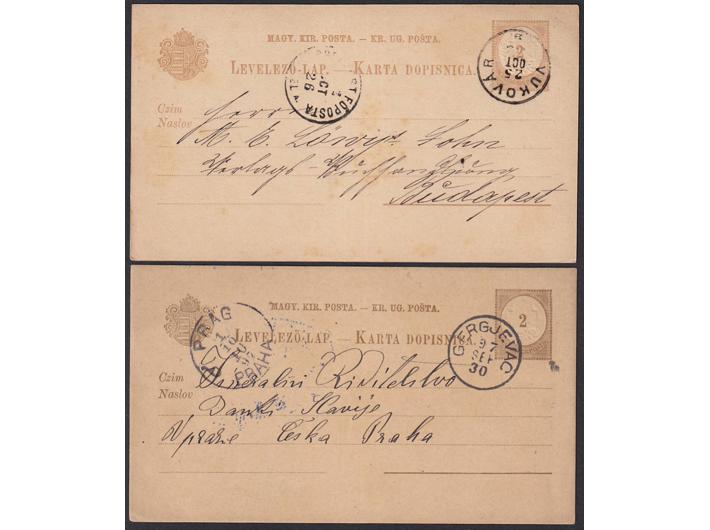 MAGY. KIR. POSTA. — KR. UG. POŠTA.
2
LEVELEZŐ-LAP. — KARTA DOPISNICA.
VUKOVÁR
25
OCT
FŐPOSTA
26
Czim
Naslov
Herrn
M. E. Löwy's Sohn
Verlags-Buchhandlung
Budapest
MAGY. KIR. POSTA. — KR. UG. POŠTA.
2
LEVELEZŐ-LAP. — KARTA DOPISNICA.
PRAG
PRAHA
GERGJEVAC
97
SEP
30
Czim
Naslov
Riditelstvo
Banki Slavije
Česka Praha